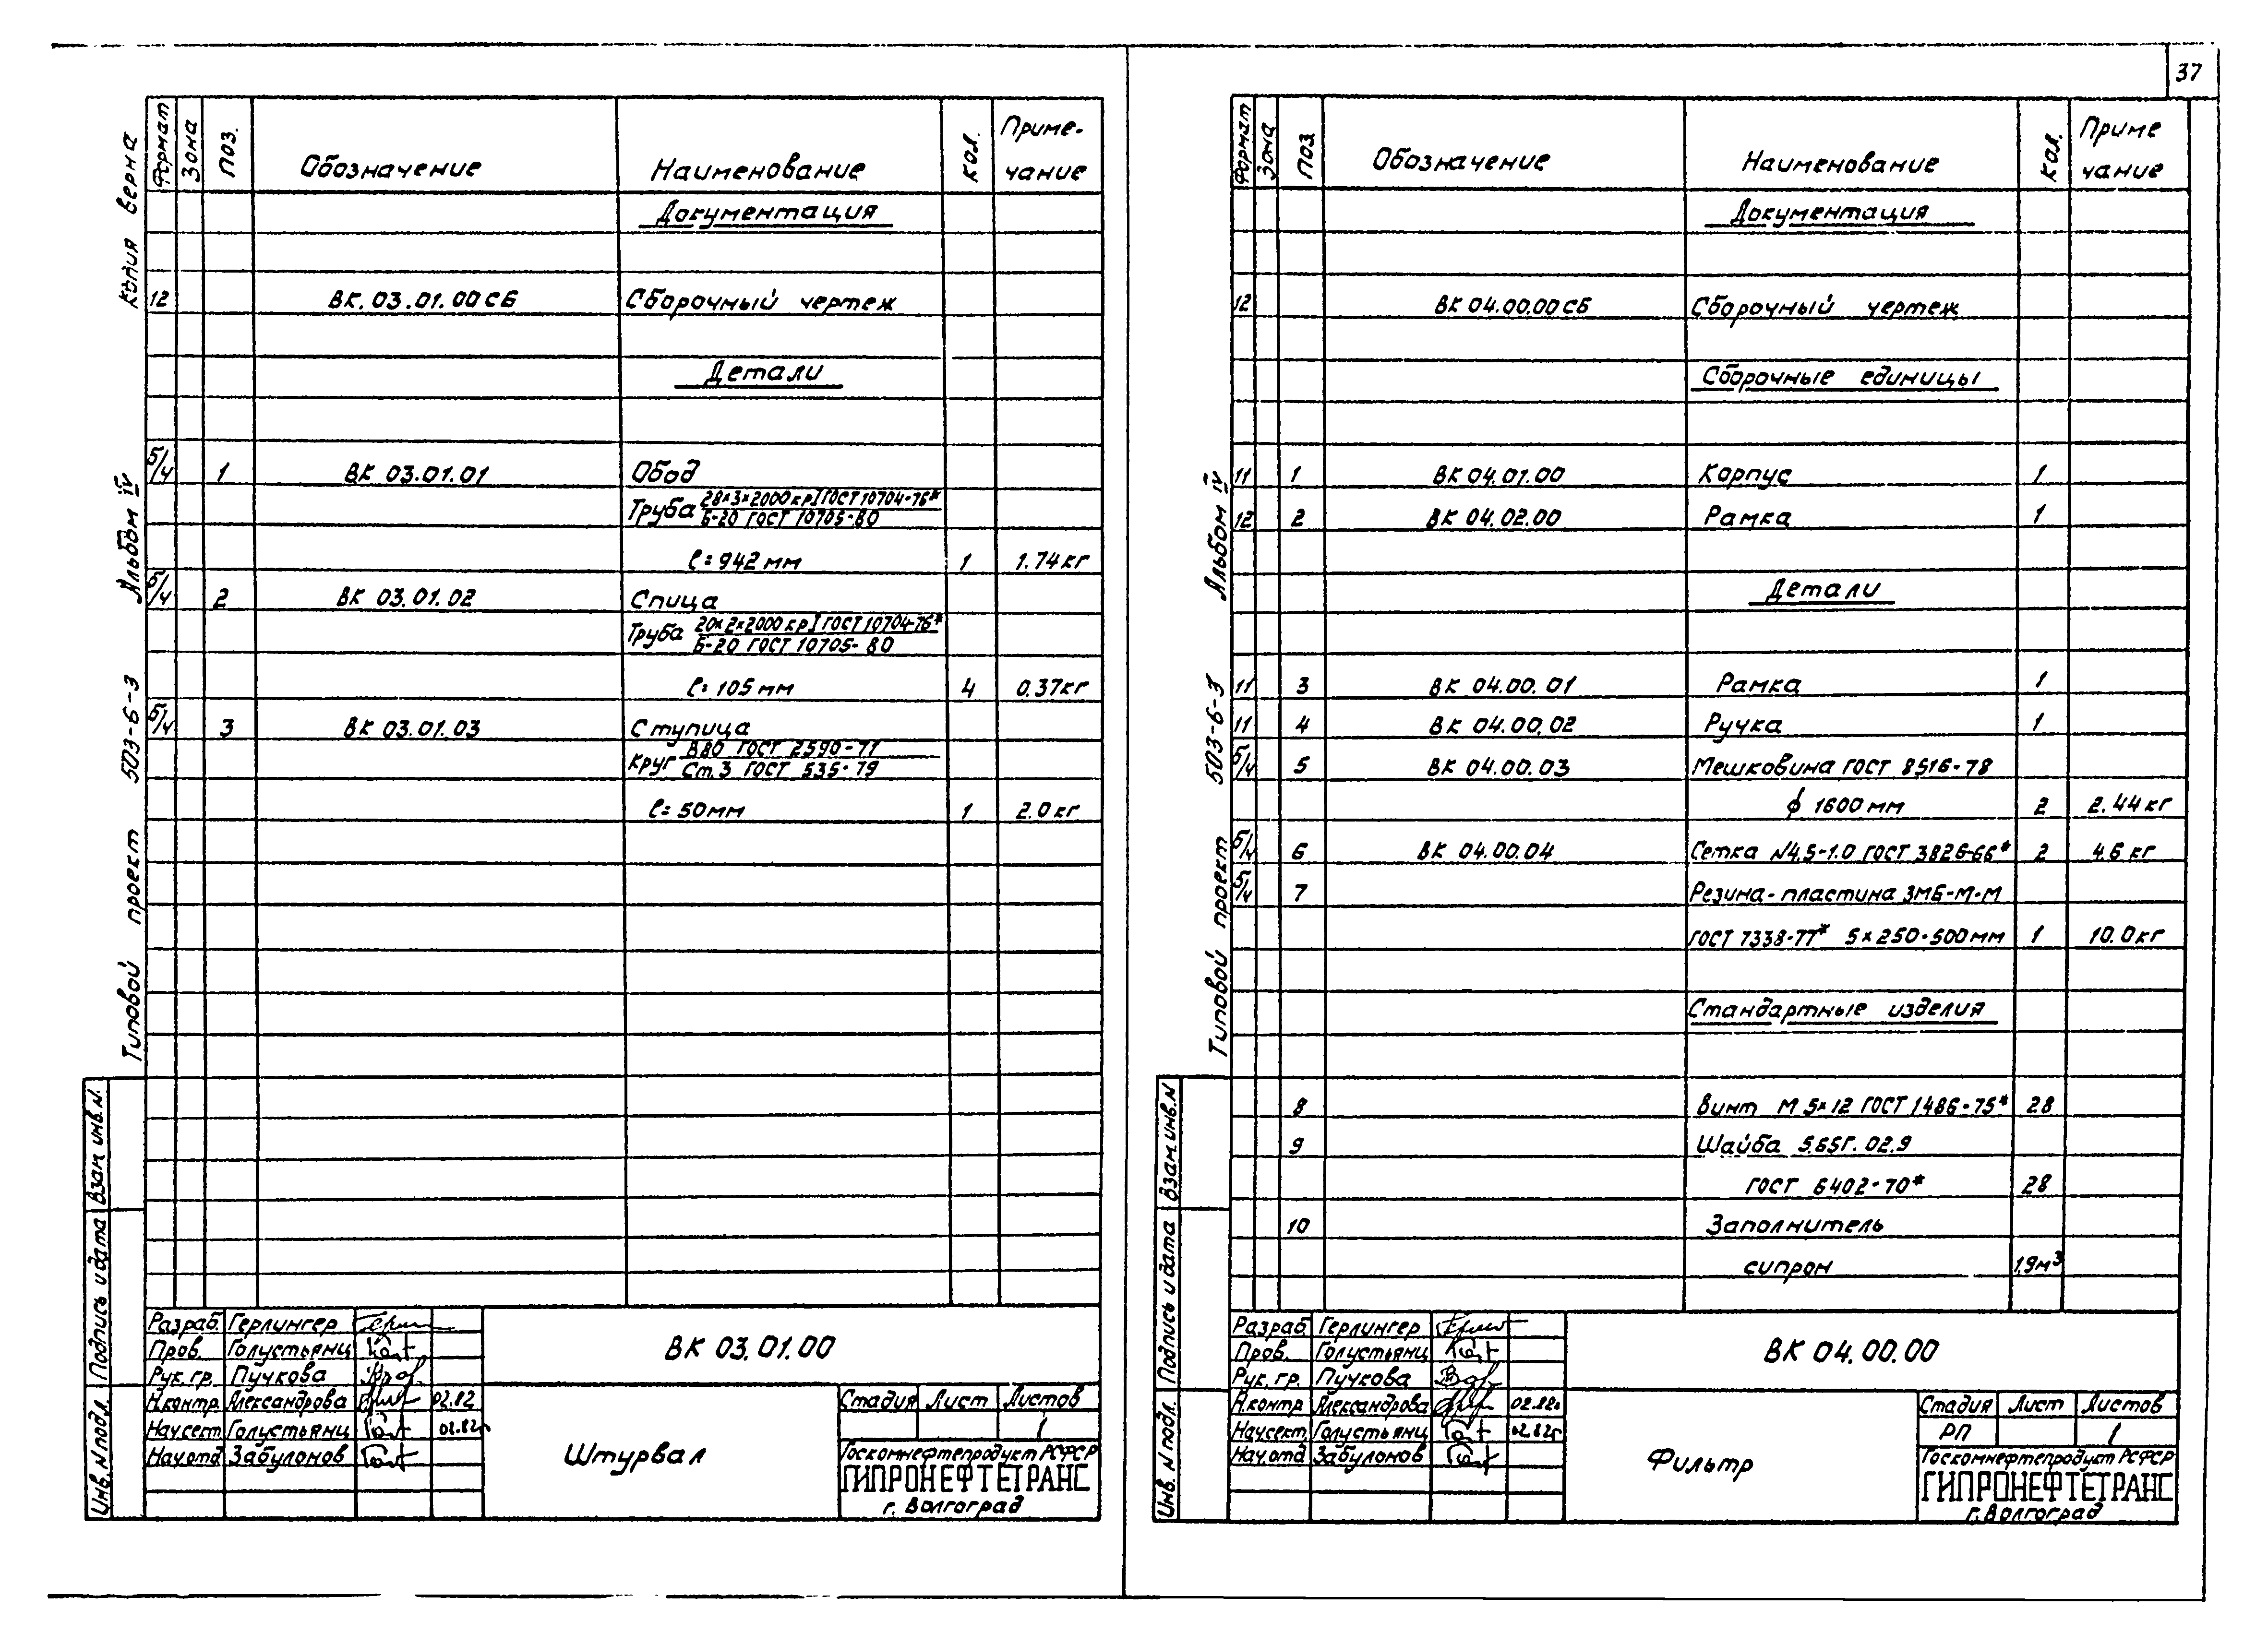 37
Копия верна
Альбом IV
Типовой проект 503-6-3
Формат Зона Поз. Обозначение Наименование Кол. Приме-
чание
Документация
12 ВК. 03.01.00 СБ Сборочный чертеж
Детали
Б/ч 1 ВК 03.01.01 Обод
Труба 28×3×2000 кр I ГОСТ 10704-76*
Б-20 ГОСТ 10705-80
ℓ= 942 мм 1 1.74 кг
Б/ч 2 ВК 03.01.02 Спица
Труба 20×2×2000 кр I ГОСТ 10704-76*
Б-20 ГОСТ 10705-80
ℓ= 105 мм 4 0.37 кг
Б/ч 3 ВК 03.01.03 Ступица
Круг В80 ГОСТ 2590-71
Ст.3 ГОСТ 535-79
ℓ= 50 мм 1 2.0 кг
Взам. инв. N.
Подпись и дата
Инв. N подл.
Разраб. Герлингер
Пров. Голустьянц
Рук. гр. Пучкова
Н.контр. Александрова 02.82
Нач.сект. Голустьянц 02.82г
Нач.отд Забулонов
ВК 03.01.00
Штурвал
Стадия Лист Листов
1
Госкомнефтепродукт РСФСР
ГИПРОНЕФТЕТРАНС
г. Волгоград
Альбом IV
Типовой проект 503-6-3
Формат Зона Поз. Обозначение Наименование Кол. Приме
чание
Документация
12 ВК 04.00.00 СБ Сборочный чертеж
Сборочные единицы
11 1 ВК 04.01.00 Корпус 1
12 2 ВК 04.02.00 Рамка 1
Детали
11 3 ВК 04.00.01 Рамка 1
11 4 ВК 04.00.02 Ручка 1
Б/ч 5 ВК 04.00.03 Мешковина ГОСТ 8516-78
ϕ 1600 мм 2 2.44 кг
Б/ч 6 ВК 04.00.04 Сетка N4,5-1.0 ГОСТ 3826-66* 2 4.6 кг
Б/ч 7 Резина-пластина 3МБ-М-М
ГОСТ 7338-77* 5×250·500 мм 1 10.0 кг
Стандартные изделия
8 Винт М 5×12 ГОСТ 1486-75* 28
9 Шайба 5.65Г.02.9
ГОСТ 6402-70* 28
10 Заполнитель
сипрон 1,9 м³
Взам. инв. N
Подпись и дата
Инв. N подл.
Разраб Герлингер
Пров. Голустьянц
Рук. гр. Пучкова
Н.контр Александрова 02.82г
Нач.сект. Голустьянц 02.82г
Нач.отд Забулонов
ВК 04.00.00
Фильтр
Стадия Лист Листов
РП 1
Госкомнефтепродукт РСФСР
ГИПРОНЕФТЕТРАНС
г. Волгоград